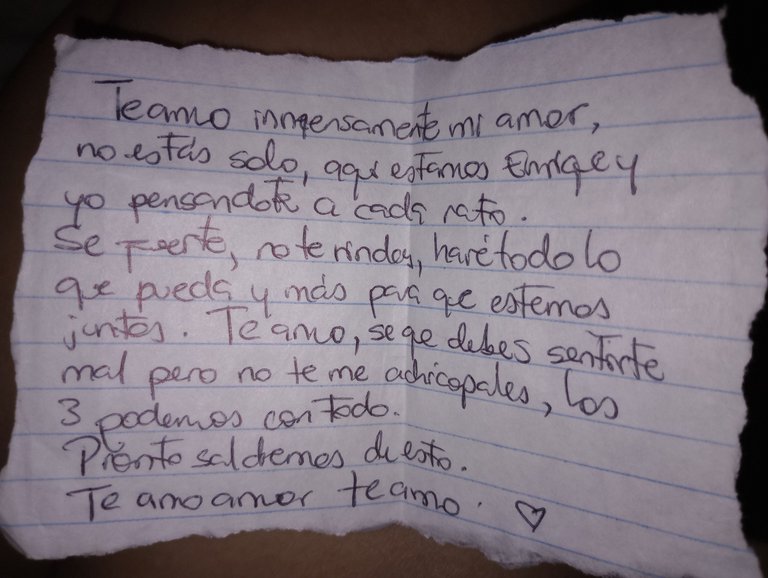 Te amo inmensamente mi amor,
no estás solo, aqui estamos Enriqe y
yo pensandote a cada rato.
Se fuerte, no te rindas, haré todo lo
que pueda y más para que estemos
juntos. Te amo, se qe debes sentirte
mal pero no te me achicopales, los
3 podemos con todo.
Pronto saldremos de esto.
Te amo amor te amo. ♡